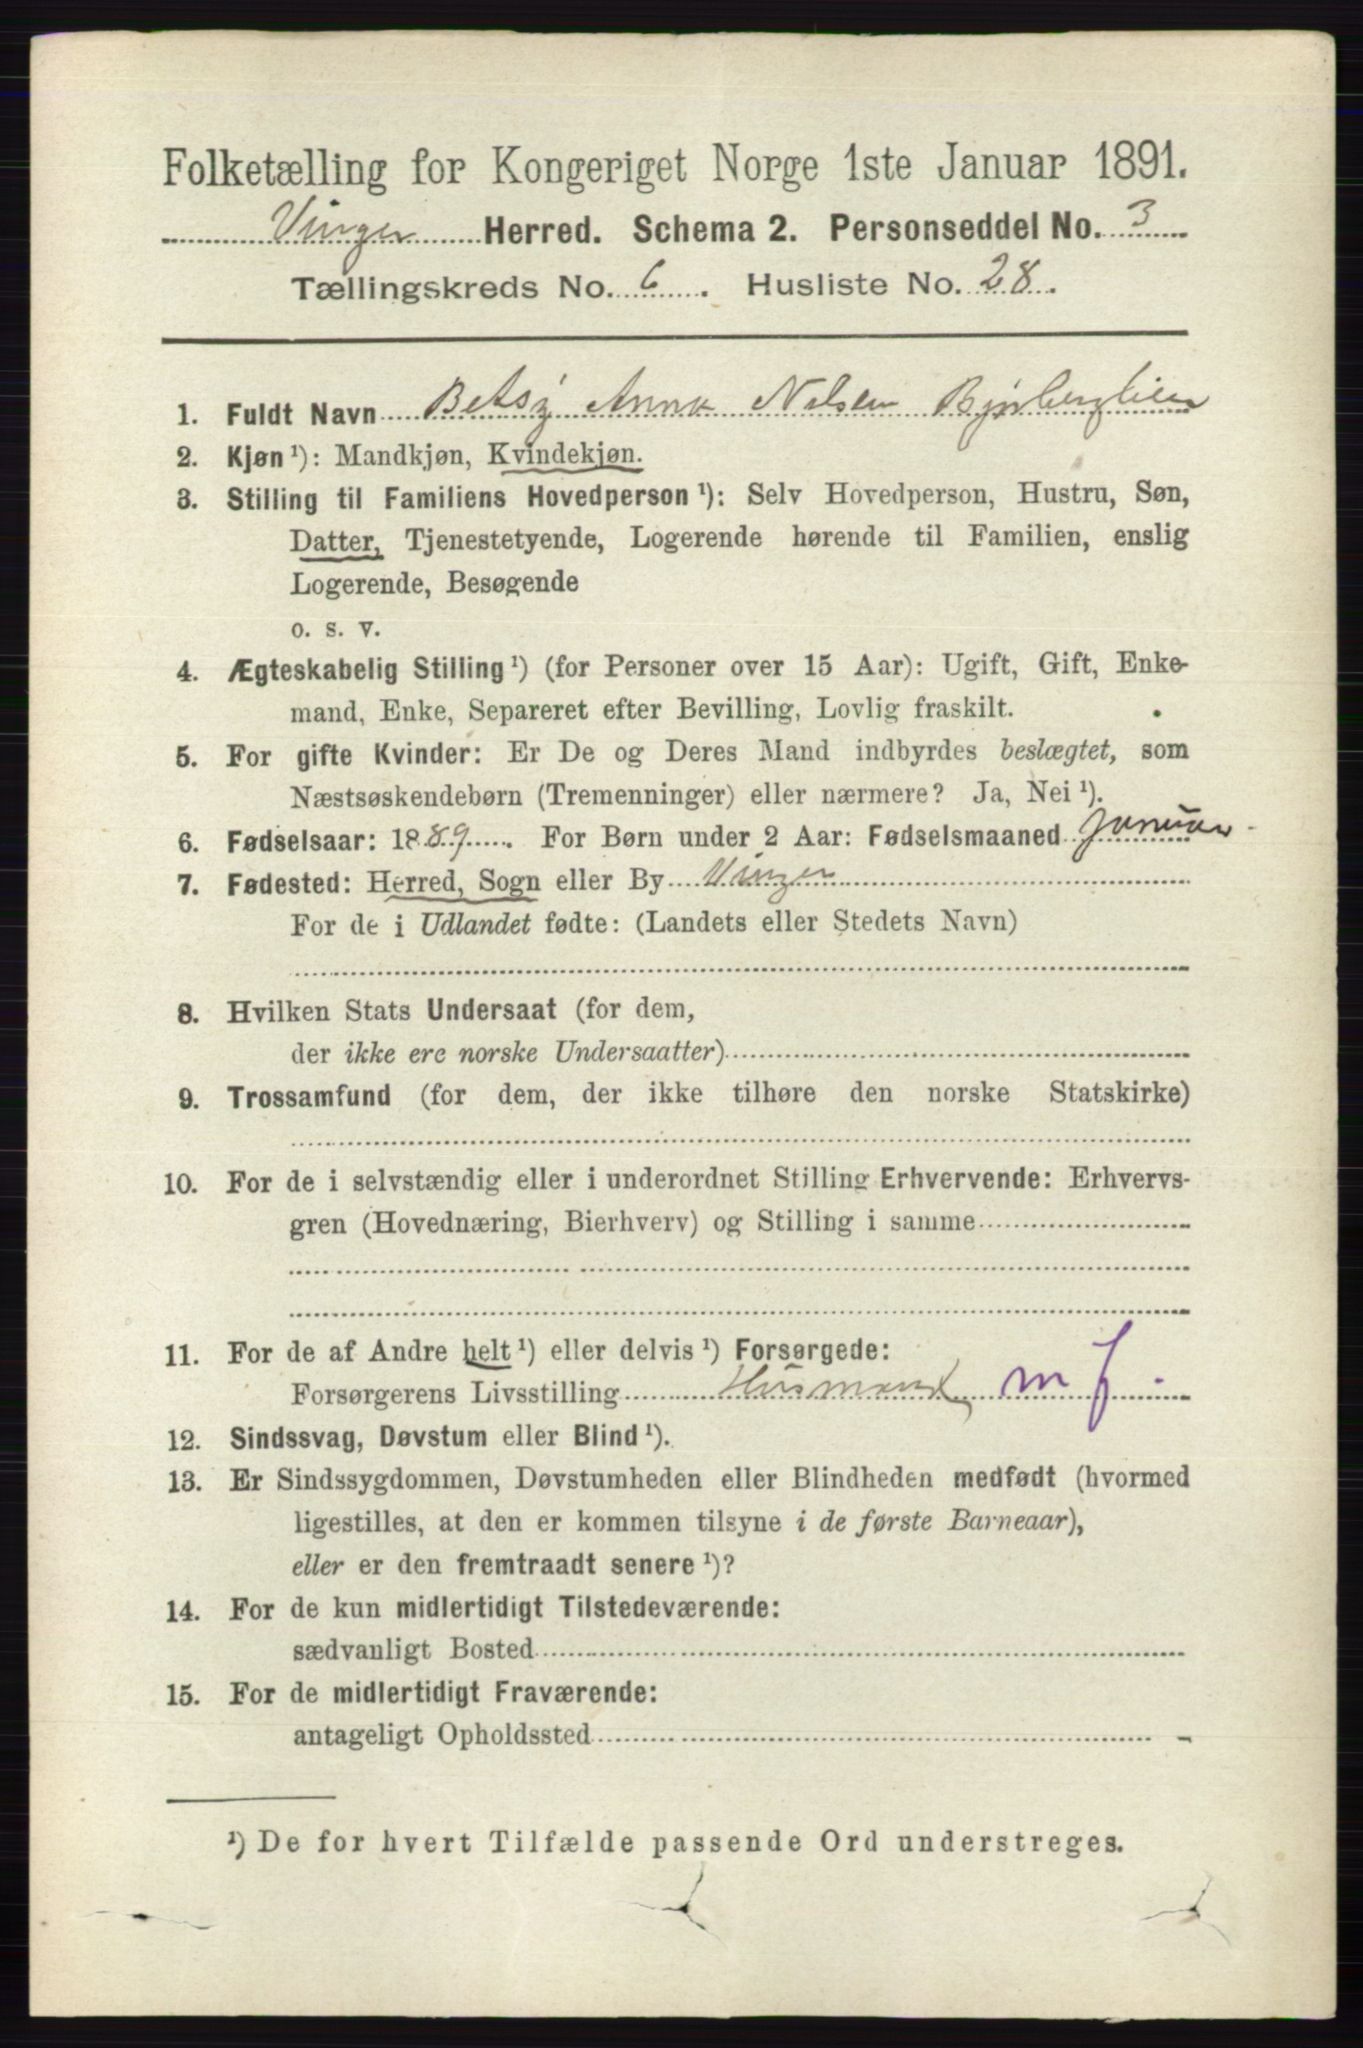 Folketælling for Kongeriget Norge 1ste Januar 1891.
Vinger Herred. Schema 2. Personseddel No. 3
Tællingskreds No. 6. Husliste No. 28.
1. Fuldt Navn Betsy Anna Nilsen
2. Kjøn ¹): Mandkjøn, Kvindekjøn.
3. Stilling til Familiens Hovedperson ¹): Selv Hovedperson, Hustru, Søn,
Datter, Tjenestetyende, Logerende hørende til Familien, enslig
Logerende, Besøgende
o. s. v.
4. Ægteskabelig Stilling ¹) (for Personer over 15 Aar): Ugift, Gift, Enke-
mand, Enke, Separeret efter Bevilling, Lovlig fraskilt.
5. For gifte Kvinder: Er De og Deres Mand indbyrdes beslægtet, som
Næstsøskendebørn (Tremenninger) eller nærmere? Ja, Nei ¹).
6. Fødselsaar: 1889. For Børn under 2 Aar: Fødselsmaaned Januar
7. Fødested: Herred, Sogn eller By Vinger
For de i Udlandet fødte: (Landets eller Stedets Navn)
8. Hvilken Stats Undersaat (for dem,
der ikke ere norske Undersaatter)
9. Trossamfund (for dem, der ikke tilhøre den norske Statskirke)
10. For de i selvstændig eller i underordnet Stilling Erhvervende: Erhvervs-
gren (Hovednæring, Bierhverv) og Stilling i samme
11. For de af Andre helt ¹) eller delvis ¹) Forsørgede:
Forsørgerens Livsstilling Husmand m f.
12. Sindssvag, Døvstum eller Blind ¹).
13. Er Sindssygdommen, Døvstumheden eller Blindheden medfødt (hvormed
ligestilles, at den er kommen tilsyne i de første Barneaar),
eller er den fremtraadt senere ¹)?
14. For de kun midlertidigt Tilstedeværende:
sædvanligt Bosted
15. For de midlertidigt Fraværende:
antageligt Opholdssted
¹) De for hvert Tilfælde passende Ord understreges.